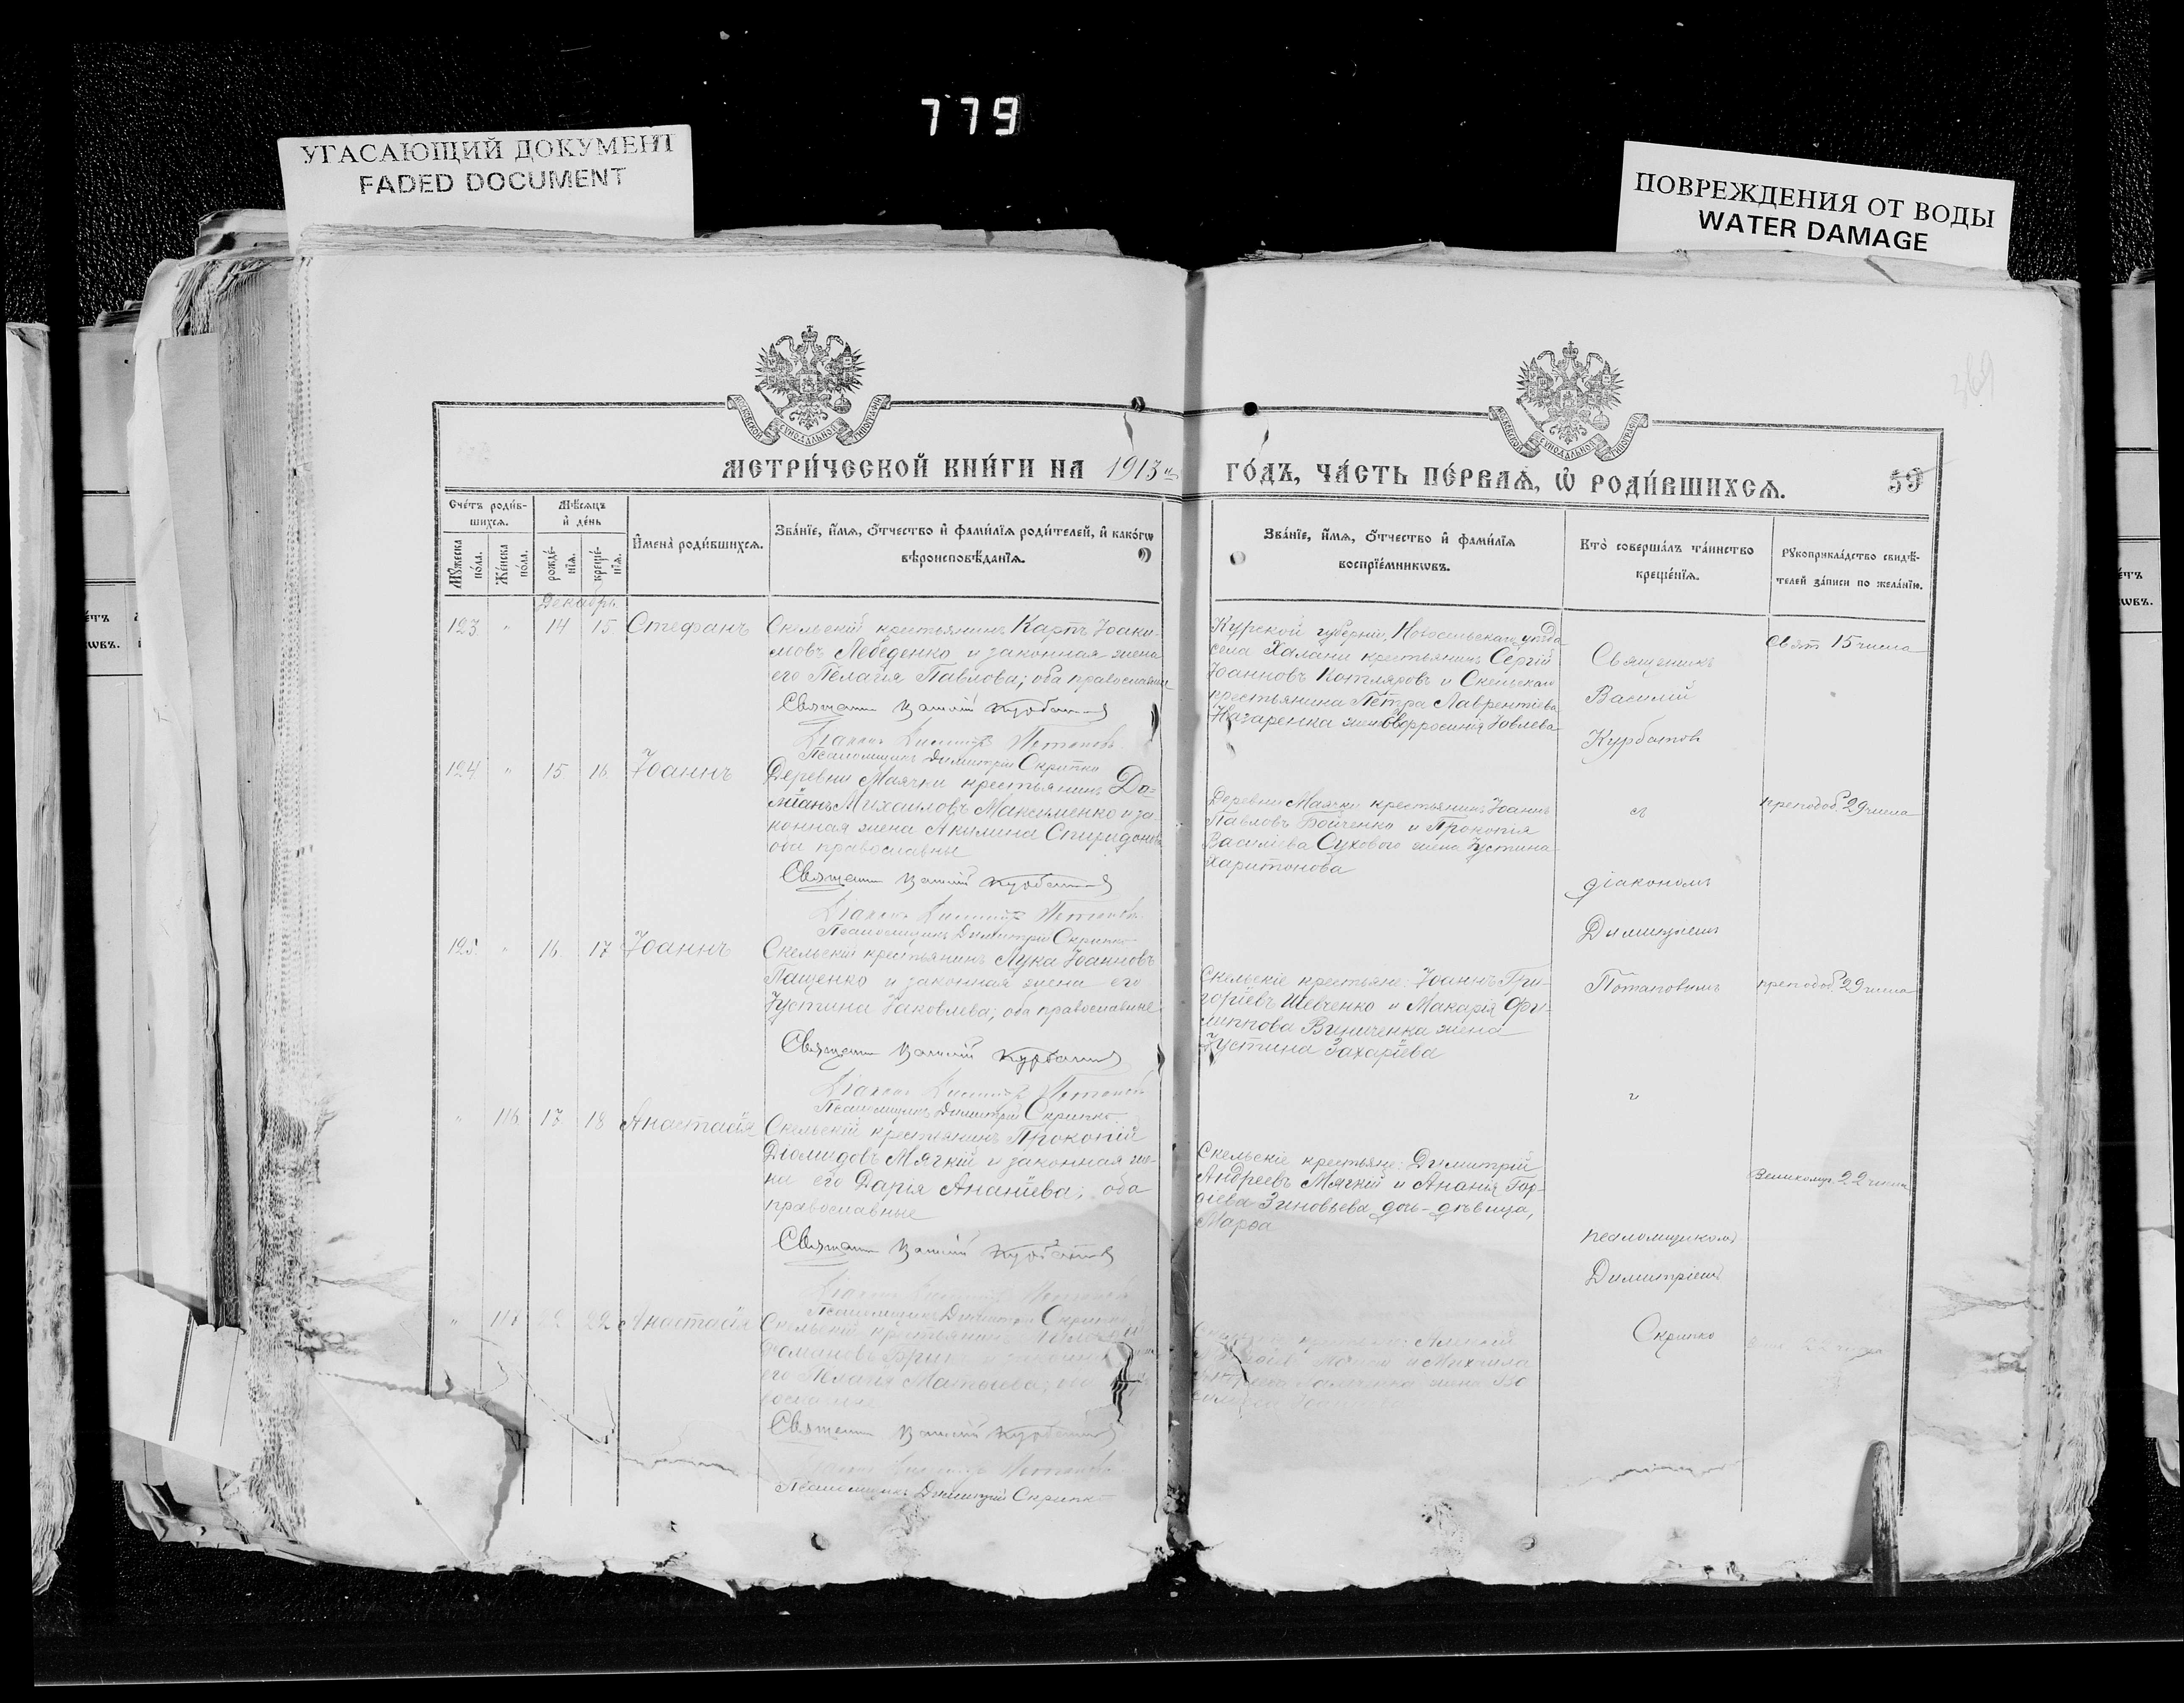 779
УГАСАЮЩИЙ ДОКУМЕНТ
FADED DOCUMENT
ПОВРЕЖДЕНИЯ ОТ ВОДЫ
WATER DAMAGE
369
МЕТРИ́ЧЕСКОЙ КНИ́ГИ НА 1913й
ГО́ДЪ, ЧА́СТЬ ПЕ́РВАѦ, Ѡ҆ РОДИ́ВШИХСѦ.
59
Сче́тъ роди́в-
шихся.
Мꙋ́жеска по́ла.
Же́нска по́ла.
Мѣ́сѧцъ и҆ де́нь
рожде́-нїѧ.
креще́-нїѧ.
И҆мена̀ роди́вшихсѧ.
Зва́нїе, и҆́мѧ, ѻ҆́тчество и҆ фами́лїѧ роди́телей, и҆ како́гѡ
вѣроисповѣ́данїѧ.
Зва́нїе, и҆́мѧ, ѻ҆́тчество и҆ фами́лїѧ
воспрїе́мникѡвъ.
Кто̀ соверша́лъ та́инство
креще́нїѧ.
Рꙋкоприкла́дство свидѣ́-
телей за́писи по жела́нїю.
Декабрь.
123 " 14 15 Стефанъ
Скельскій крестьянинъ Карпъ Іоаки-
мовъ Лебеденко и законная жена
его Пелагія Павлова; оба православные
Священникъ Василій Курбатовъ
Діаконъ Димитрій Потаповъ
Псаломщикъ Димитрій Скрипко
Курской губерніи, Новооскольскаго уѣзда
села Халани крестьянинъ Сергій
Іоанновъ Котляровъ и Скельскаго
крестьянина Петра Лаврентіева
Назаренка жена Евфросинія Іовлева
Священникъ
Василій
Курбатов
Свят 15 числа
124 " 15 16 Іоаннъ
Деревни Маячки крестьянинъ Да=
міанъ Михаиловъ Максименко и за-
конная жена Акилина Спиридонова
оба православные
Священникъ Василій Курбатовъ
Діаконъ Димитрій Потаповъ
Псаломщикъ Димитрій Скрипко
Деревни Маячки крестьянинъ Іоаннъ
Павловъ Бойченко и Прокопія
Василіева Сухового жена Іустина
Харитонова
съ
діакономъ
Димитріемъ
Потаповымъ
преподоб. 29 числа
125 " 16 17 Іоаннъ
Скельскій крестьянинъ Лука Іоанновъ
Пащенко и законная жена его
Іустина Іаковлева; оба православные
Священникъ Василій Курбатовъ
Діаконъ Димитрій Потаповъ
Псаломщикъ Димитрій Скрипко
Скельскіе крестьяне: Іоаннъ Гри-
горіевъ Шевченко и Макарія Фи-
липпова Виниченка жена
Іустина Захаріева
преподоб. 29 числа
и
" 116 17 18 Анастасія
Скельскій крестьянинъ Прокопій
Діомидовъ Мягкій и законная же-
на его Дарія Ананіева; оба
православные
Священникъ Василій Курбатовъ
Псаломщикъ Димитрій Скрипко
Скельскіе крестьяне: Димитрій
Андреевъ Мягкій и Ананія Гор-
діева Зиновьева дочь-дѣвица,
Марѳа
псаломщикомъ
Димитріемъ
Скрипко
Великомуч. 22 числа
" 117 22 Анастасія
Скельскій крестьянинъ
его Пелагія Матѳіева;
Священникъ Василій Курбатовъ
Псаломщикъ Димитрій Скрипко